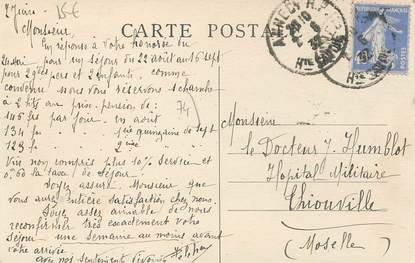 2 Juin
15€
CARTE POSTALE
Monsieur,
En réponse à votre honorée du
24 pour un séjour du 22 août au 16 sept
pour 2 personnes et 2 enfants, comme
convenu nous vous réservons 2 chambres
à 2 lits au prix-pension de:
145 frs par jour en août
134 fr " 1ère quinzaine de sept
123 fr " 2ème
Vin non compris plus 10% service et
0,60 la taxe de séjour.
Soyez assuré Monsieur que
vous aurez entière satisfaction chez nous.
Soyez assez aimable de nous
reconfirmer très exactement votre
séjour une semaine au moins avant
votre arrivée
avec nos sentiments dévoués
74
ANNECY R.P.
HTE SAVOIE
Monsieur
le Docteur J. Humblot
Hopital Militaire
Thionville
(Moselle)